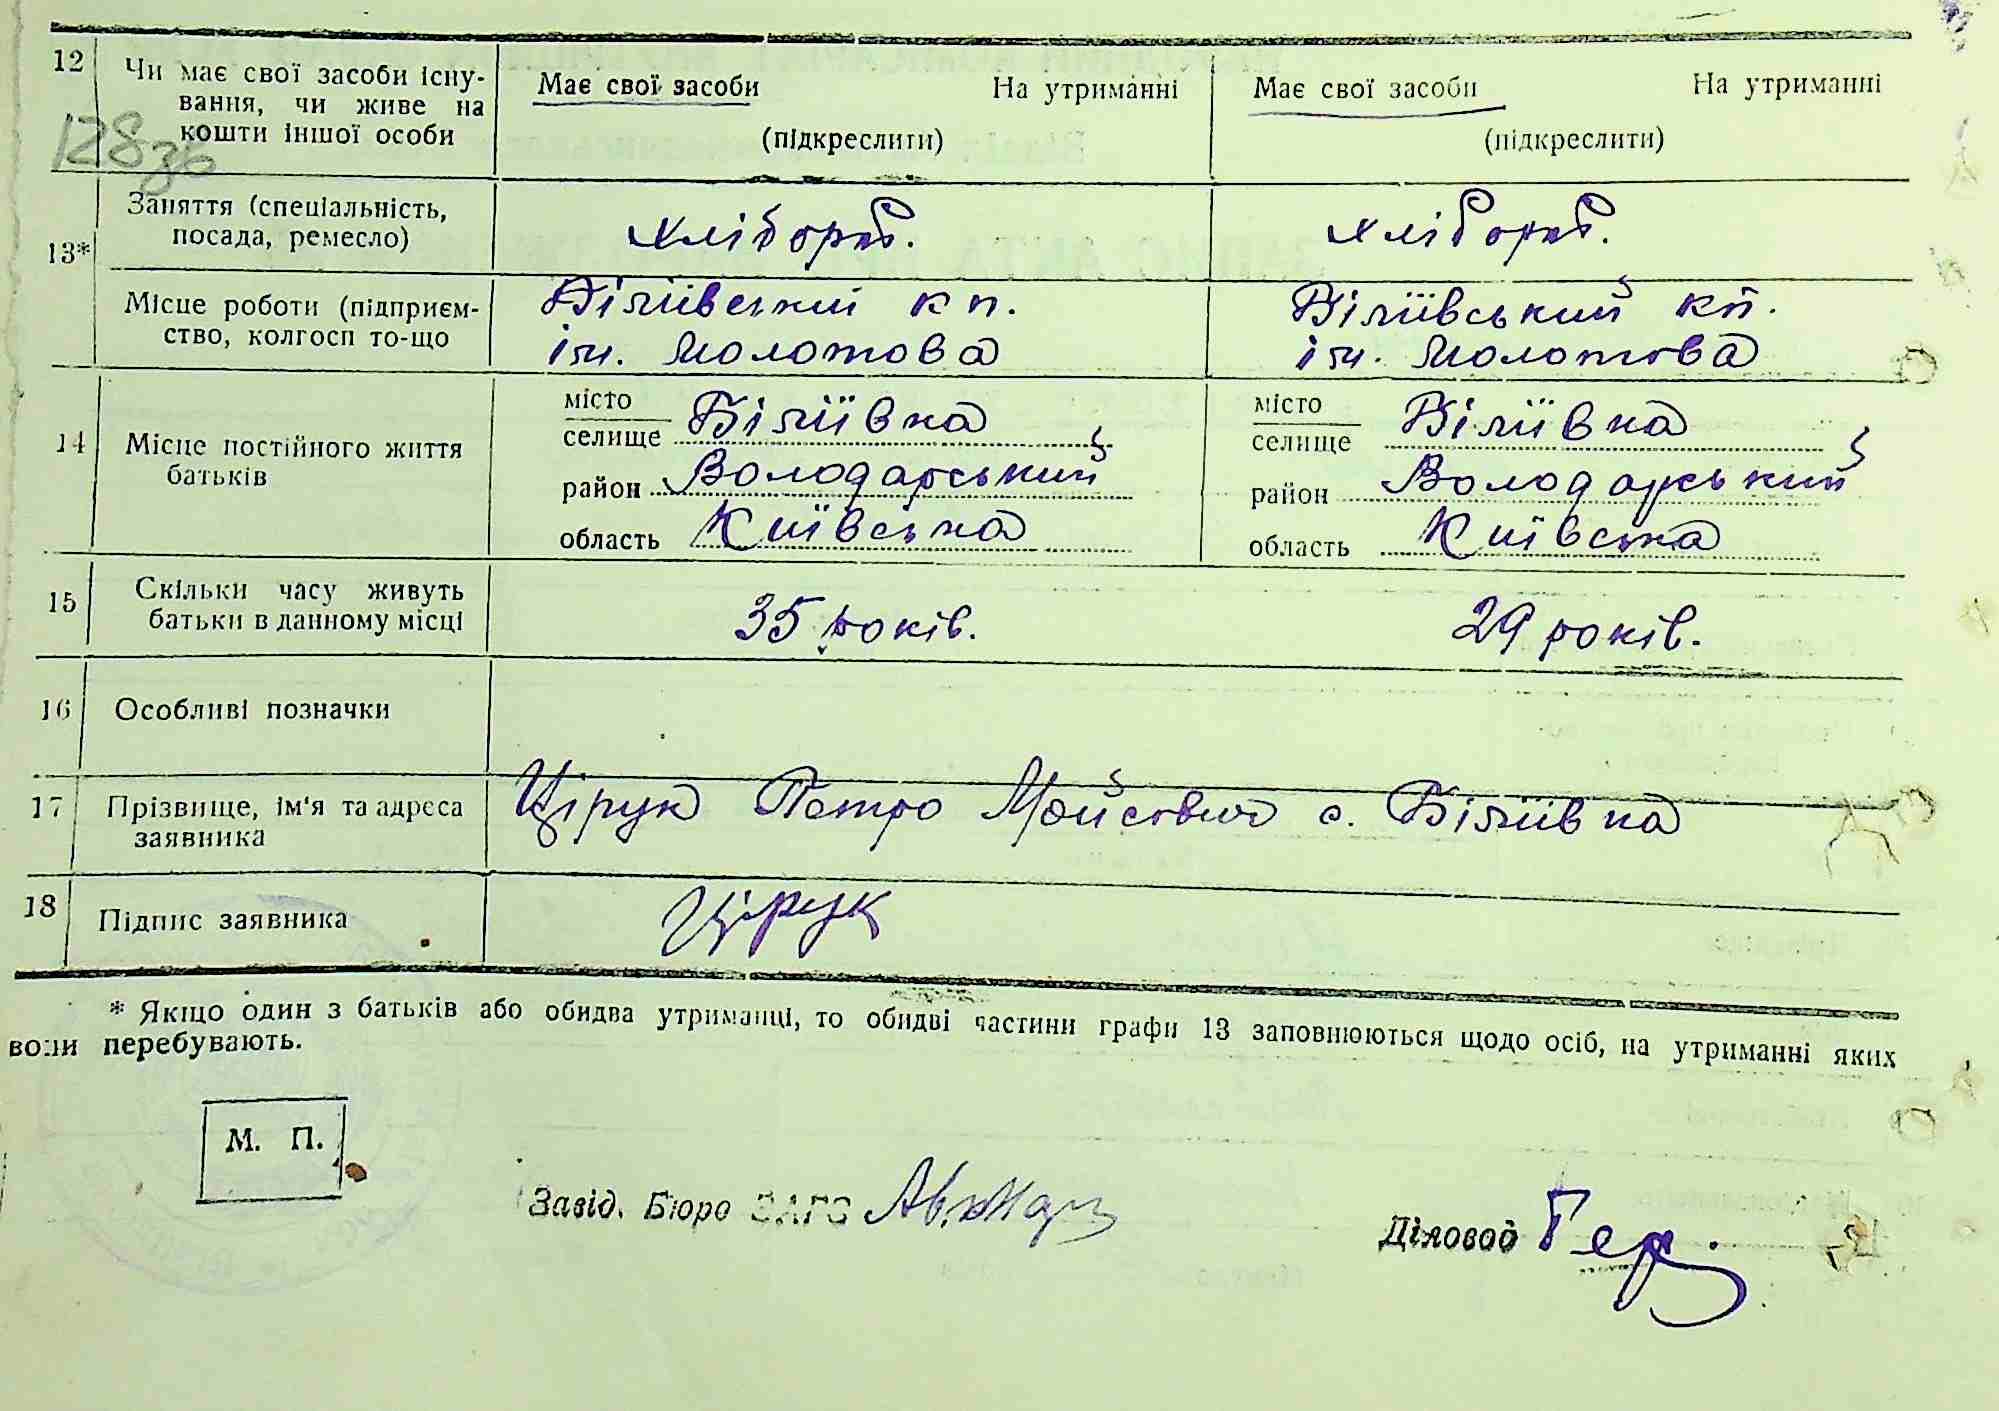 12 Чи має свої засоби існу- Має свої засоби На утриманні Має свої засоби На утриманні
вання, чи живе на
кошти іншої особи (підкреслити) (підкреслити)
128зв
13* Заняття (спеціальність, хлібороб. хлібороб.
посада, ремесло)
Місце роботи (підприєм- Біліївський кп. Біліївський кп.
ство, колгосп то-що ім. Молотова ім. Молотова
14 Місце постійного життя місто місто
батьків селище Біліївка селище Біліївка
район Володарський район Володарський
область Київська область Київська
15 Скільки часу живуть 35 років. 29 років.
батьки в данному місці
16 Особливі позначки
17 Прізвище, ім'я та адреса Цірук Петро Мойсович с. Біліївка
заявника
18 Підпис заявника Цірук
* Якщо один з батьків або обидва утриманці, то обидві частини графи 13 заповнюються щодо осіб, на утриманні яких
вони перебувають.
М. П.
Завід. Бюро ЗАГС
Діловод Гер.